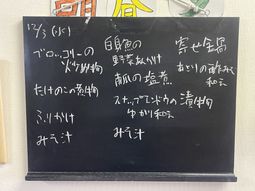 12/3 (水)
ブロッコリーの
炒め物
たけのこの煮物
ふりかけ
みそ汁
白身魚の
野菜あんかけ
塩煮
スナップエンドウの
ゆかり和え
みそ汁
寄せ鍋
酢みそ
和え
漬物